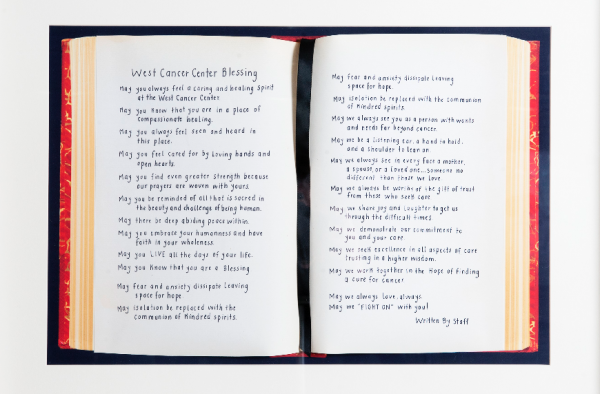 West Cancer Center Blessing
May you always feel a caring and healing spirit
at the West Cancer Center
May you know that you are in a place of
compassionate healing.
May you always feel seen and heard in
this place.
May you feel cared for by loving hands and
open hearts.
May you find even greater strength because
our prayers are woven with yours.
May you be reminded of all that is sacred in
the beauty and challenge of being human.
May there be deep abiding peace within.
May you embrace your humanness and have
faith in your wholeness
May you LIVE all the days of your life.
May you know that you are a Blessing
May fear and anxiety dissipate leaving
space for hope
May isolation be replaced with the
communion of kindred spirits.
May fear and anxiety dissipate leaving
space for hope.
May isolation be replaced with the communion
of kindred spirits.
May we always see you as a person with wants
and needs far beyond cancer.
May we be a listening ear, a hand to hold,
and a shoulder to lean on
May we always see in every face a mother,
a spouse, or a loved one...someone no
different than those we love
May we always be worthy of the gift of trust
from those who seek care
May we share joy and laughter to get us
through the difficult times
May we demonstrate our commitment to
you and your care
May we seek excellence in all aspects of care
trusting in a higher wisdom.
May we work together in the hope of finding
a cure for cancer
May we always love, always
May we "FIGHT ON" with you!
Written By Staff